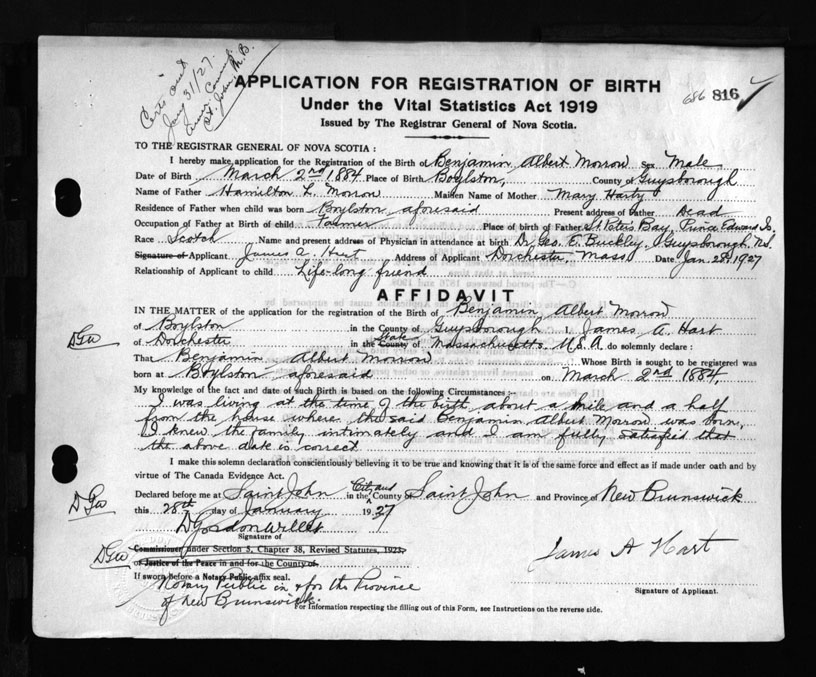 Certs sent
Jany 31/27.
St. John, N.B.
686 816
APPLICATION FOR REGISTRATION OF BIRTH
Under the Vital Statistics Act 1919
Issued by The Registrar General of Nova Scotia.
TO THE REGISTRAR GENERAL OF NOVA SCOTIA :
I hereby make application for the Registration of the Birth of Benjamin Albert Morrow Sex Male
Date of Birth March 2nd 1884 Place of Birth Boylston, County of Guysborough
Name of Father Hamilton L. Morrow Maiden Name of Mother Mary Harty
Residence of Father when child was born Boylston aforesaid Present address of Father Dead
Occupation of Father at Birth of child Farmer Place of Birth of Father St. Peters Bay, Prince Edward Is.
Race Scotch Name and present address of Physician in attendance at birth Dr. Geo. E. Buckley, Guysborough, N.S.
Signature of Applicant James A. Hart Address of Applicant Dorchester, Mass. Date Jan. 28th 1927
Relationship of Applicant to child Life-long friend
AFFIDAVIT
IN THE MATTER of the application for the registration of the Birth of Benjamin Albert Morrow
of Boylston in the County of Guysborough I, James A. Hart
DGW of Dorchester in the County State of Massachusetts, U.S.A. do solemnly declare :
That Benjamin Albert Morrow Whose Birth is sought to be registered was
born at Boylston aforesaid on March 2nd 1884,
My knowledge of the fact and date of such Birth is based on the following Circumstances:
I was living at the time of the birth about a mile and a half
from the house where the said Benjamin Albert Morrow was born,
I knew the family intimately and I am fully satisfied that
the above date is correct
I make this solemn declaration conscientiously believing it to be true and knowing that it is of the same force and effect as if made under oath and by
virtue of The Canada Evidence Act.
Declared before me at Saint John in the City and County of Saint John and Province of New Brunswick
DGW this 28th day of January 1927
D Gordon Willet
Signature of
DGW Commissioner under Section 3, Chapter 38, Revised Statutes, 1923,
or Justice of the Peace in and for the County of
James A Hart
If sworn before a Notary Public affix seal.
Signature of Applicant.
Notary Public in & for the Province
of New Brunswick.
For Information respecting the filling out of this Form, see Instructions on the reverse side.